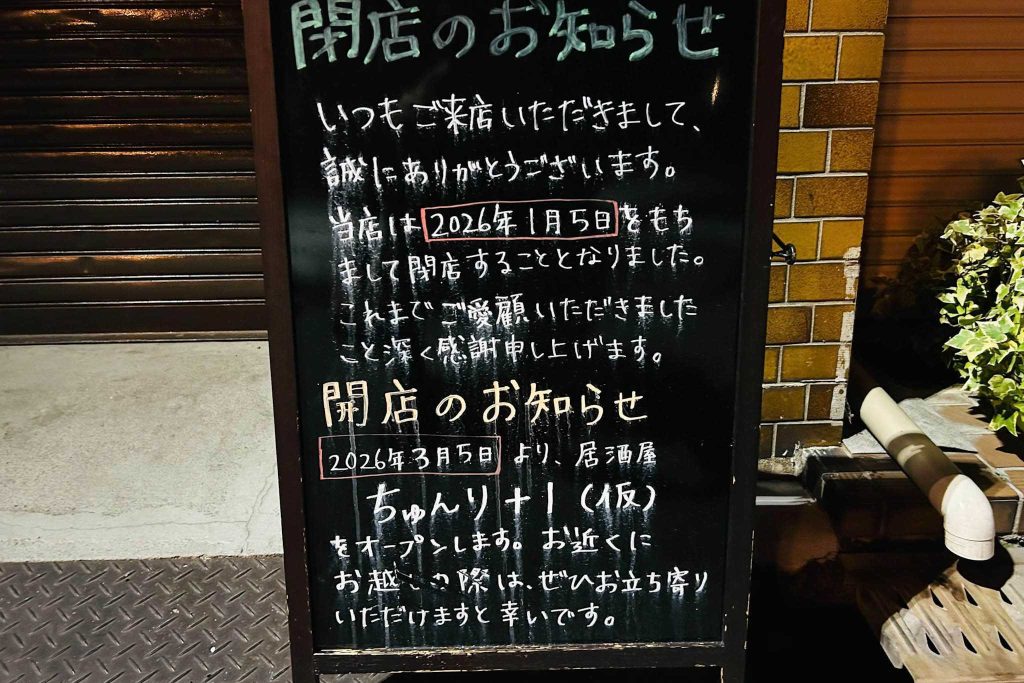 閉店のお知らせ
いつもご来店いただきまして、
誠にありがとうございます。
当店は2026年1月5日をもち
まして閉店することとなりました。
これまでご愛顧いただきました
こと深く感謝申し上げます。
開店のお知らせ
2026年3月5日より、居酒屋
ちゅんり+1(仮)
をオープンします。お近くに
お越しの際は、ぜひお立ち寄り
いただけますと幸いです。